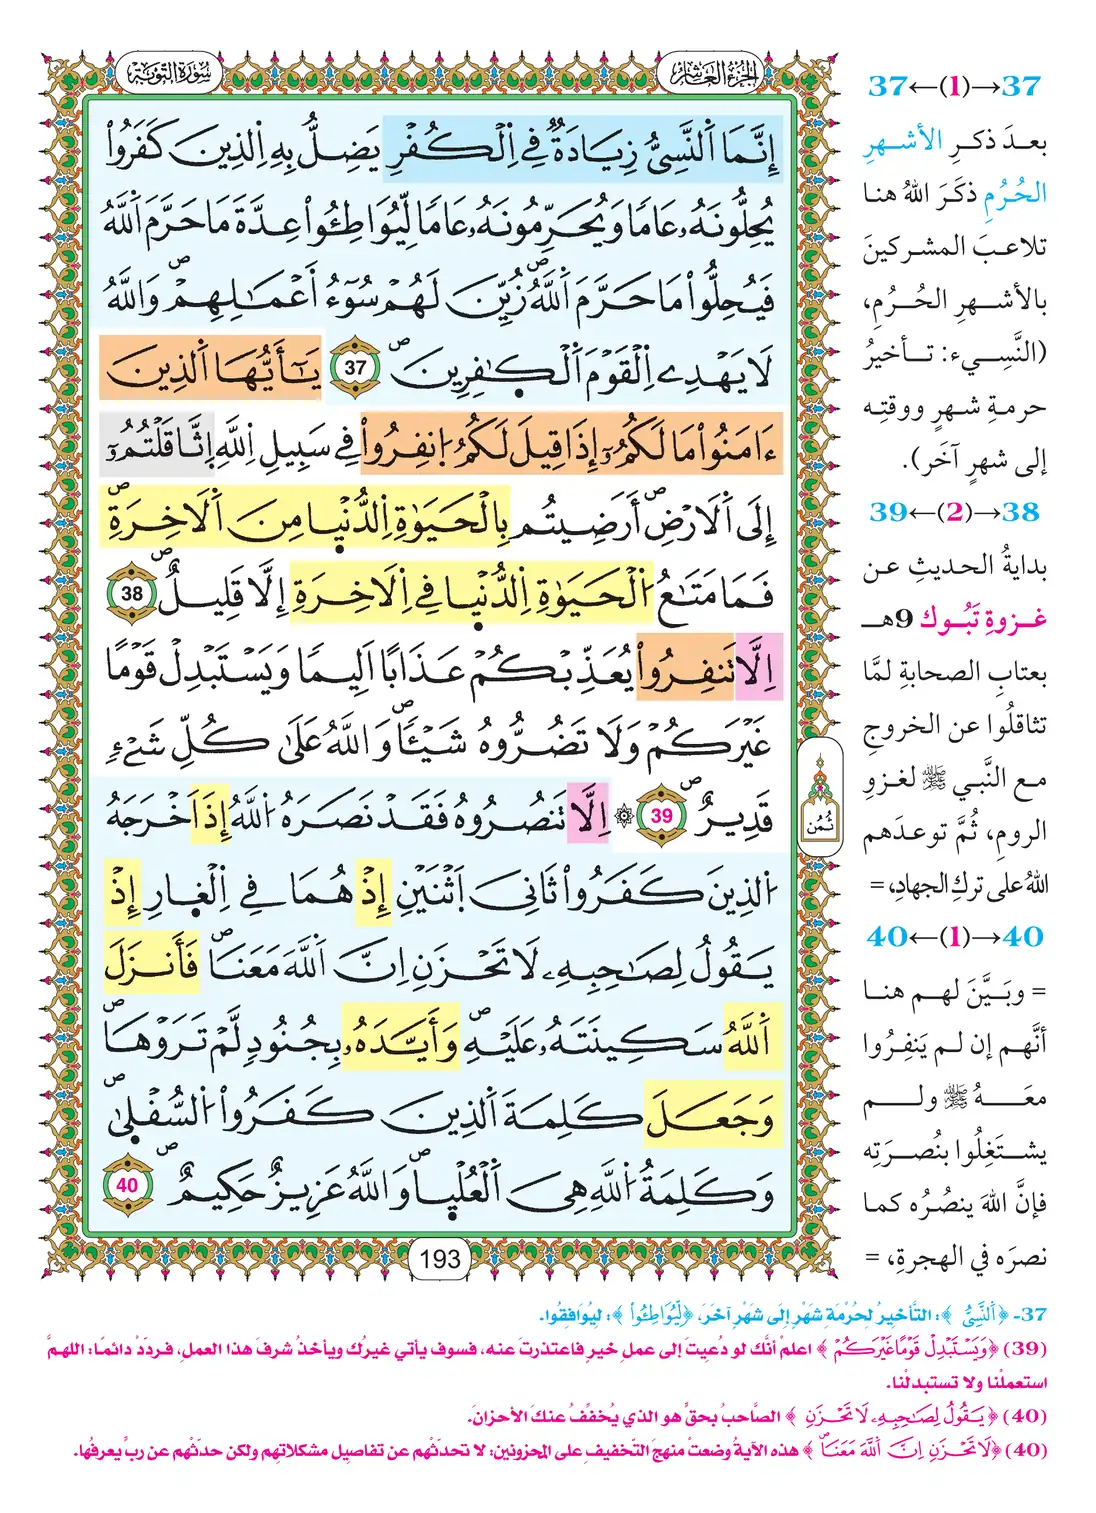 الجزء العاشر
سورة التوبة
إِنَّمَا اَ۬لنَّسِيُّ زِيَادَةٞ فِے اِ۬لْكُفْرِ يَضِلُّ بِهِ اِ۬لذِينَ كَفَرُواْ
يُحِلُّونَهُۥ عَاماٗ وَيُحَرِّمُونَهُۥ عَاماٗ لِّيُوَاطِـُٔواْ عِدَّةَ مَا حَرَّمَ اَ۬للَّهُ
فَيُحِلُّواْ مَا حَرَّمَ اَ۬للَّهُۖ زُيِّنَ لَهُمْ سُوٓءُ اَ۬عْمَٰلِهِمْۖ وَاللَّهُ
لَا يَهْدِے اِ۬لْقَوْمَ اَ۬لْكٰ۪فِرِينَۖ 37 يَٰٓأَيُّهَا اَ۬لذِينَ
ءَامَنُواْ مَا لَكُمُۥٓ إِذَا قِيلَ لَكُمُ اُ۪نفِرُواْ فِے سَبِيلِ اِ۬للَّهِ اِ۪ثَّاقَلْتُمُۥٓ
إِلَى اَ۬لَارْضِۖ أَرَضِيتُم بِالْحَيَوٰةِ اِ۬لدُّنْي۪ا مِنَ اَ۬لَاخِرَةِۖ
فَمَا مَتَٰعُ اُ۬لْحَيَوٰةِ اِ۬لدُّنْي۪ا فِے اِ۬لَاخِرَةِ إِلَّا قَلِيلٌۖ 38
اِلَّا تَنفِرُواْ يُعَذِّبْكُمْ عَذَاباً اَلِيماٗ وَيَسْتَبْدِلْ قَوْماً
غَيْرَكُمْ وَلَا تَضُرُّوهُ شَيْـٔاٗۖ وَاللَّهُ عَلَىٰ كُلِّ شَےْءٖ
قَدِيرٌۖ 39 ۞ اِلَّا تَنصُرُوهُ فَقَدْ نَصَرَهُ اُ۬للَّهُ إِذَ اَخْرَجَهُ
اُ۬لذِينَ كَفَرُواْ ثَانِيَ اَ۪ثْنَيْنِ إِذْ هُمَا فِے اِ۬لْغ۪ارِ إِذْ
يَقُولُ لِصَٰحِبِهِۦ لَا تَحْزَنِ اِنَّ اَ۬للَّهَ مَعَنَاۖ فَأَنزَلَ
اَ۬للَّهُ سَكِينَتَهُۥ عَلَيْهِۖ وَأَيَّدَهُۥ بِجُنُودٖ لَّمْ تَرَوْهَاۖ
وَجَعَلَ كَلِمَةَ اَ۬لذِينَ كَفَرُواْ اُ۬لسُّفْل۪ىٰۖ
وَكَلِمَةُ اُ۬للَّهِ هِيَ اَ۬لْعُلْي۪اۖ وَاللَّهُ عَزِيزٌ حَكِيمٌۖ 40
ثُمُن
193
37←(1)→37
بعدَ ذكرِ الأشهرِ
الحُرُمِ ذكَرَ اللهُ هنا
تلاعبَ المشركينَ
بالأشهرِ الحُرُمِ،
(النَّسِيء: تأخيرُ
حرمةِ شهرٍ ووقتِه
إلى شهرٍ آخَر).
39←(2)→38
بدايةُ الحديثِ عن
غزوةِ تَبُوك 9هـ
بعتابِ الصحابةِ لمَّا
تثاقلُوا عن الخروجِ
مع النَّبي ﷺ لغزوِ
الروم، ثُمَّ توعدَهم
اللهُ على تركِ الجهادِ، =
40←(1)→40
= وبَيَّنَ لهم هنا
أنَّهم إن لم يَنفِرُوا
معَهُ ﷺ ولم
يشتَغِلُوا بنُصرَتِه
فإنَّ اللهَ ينصُرُه كما
نصرَه في الهجرةِ، =
37- ﴿اَ۬لنَّسِيُّ﴾: التَّأخيرُ لحُرْمَةِ شَهْرٍ إلى شَهْرٍ آخَرَ، ﴿لِّيُوَاطِـُٔواْ﴾: ليُوَافِقُوا.
(39) ﴿وَيَسْتَبْدِلْ قَوْماً غَيْرَكُمْ﴾ اعلم أنَّك لو دُعِيتَ إلى عملِ خيرٍ فاعتذرتَ عنه، فسوف يأتي غيرُك ويأخذُ شرفَ هذا العملِ، فردِّدْ دائمًا: اللهمَّ
استعملْنا ولا تستبدلْنا.
(40) ﴿يَقُولُ لِصَٰحِبِهِۦ لَا تَحْزَنِ﴾ الصَّاحبُ بحقٍّ هو الذي يُخفِّفُ عنكَ الأحزانَ.
(40) ﴿لَا تَحْزَنِ اِنَّ اَ۬للَّهَ مَعَنَاۖ﴾ هذه الآيةُ وضعتْ منهجَ التَّخفيفِ على المحزونين: لا تحدثْهم عن تفاصيل مشكلاتِهم ولكن حدثْهم عن ربٍّ يعرفُها.